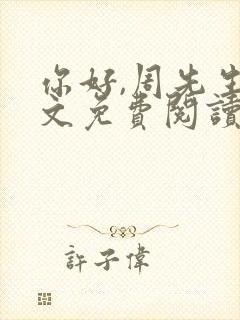 你好,周先生
文免費閱讀
許子偉